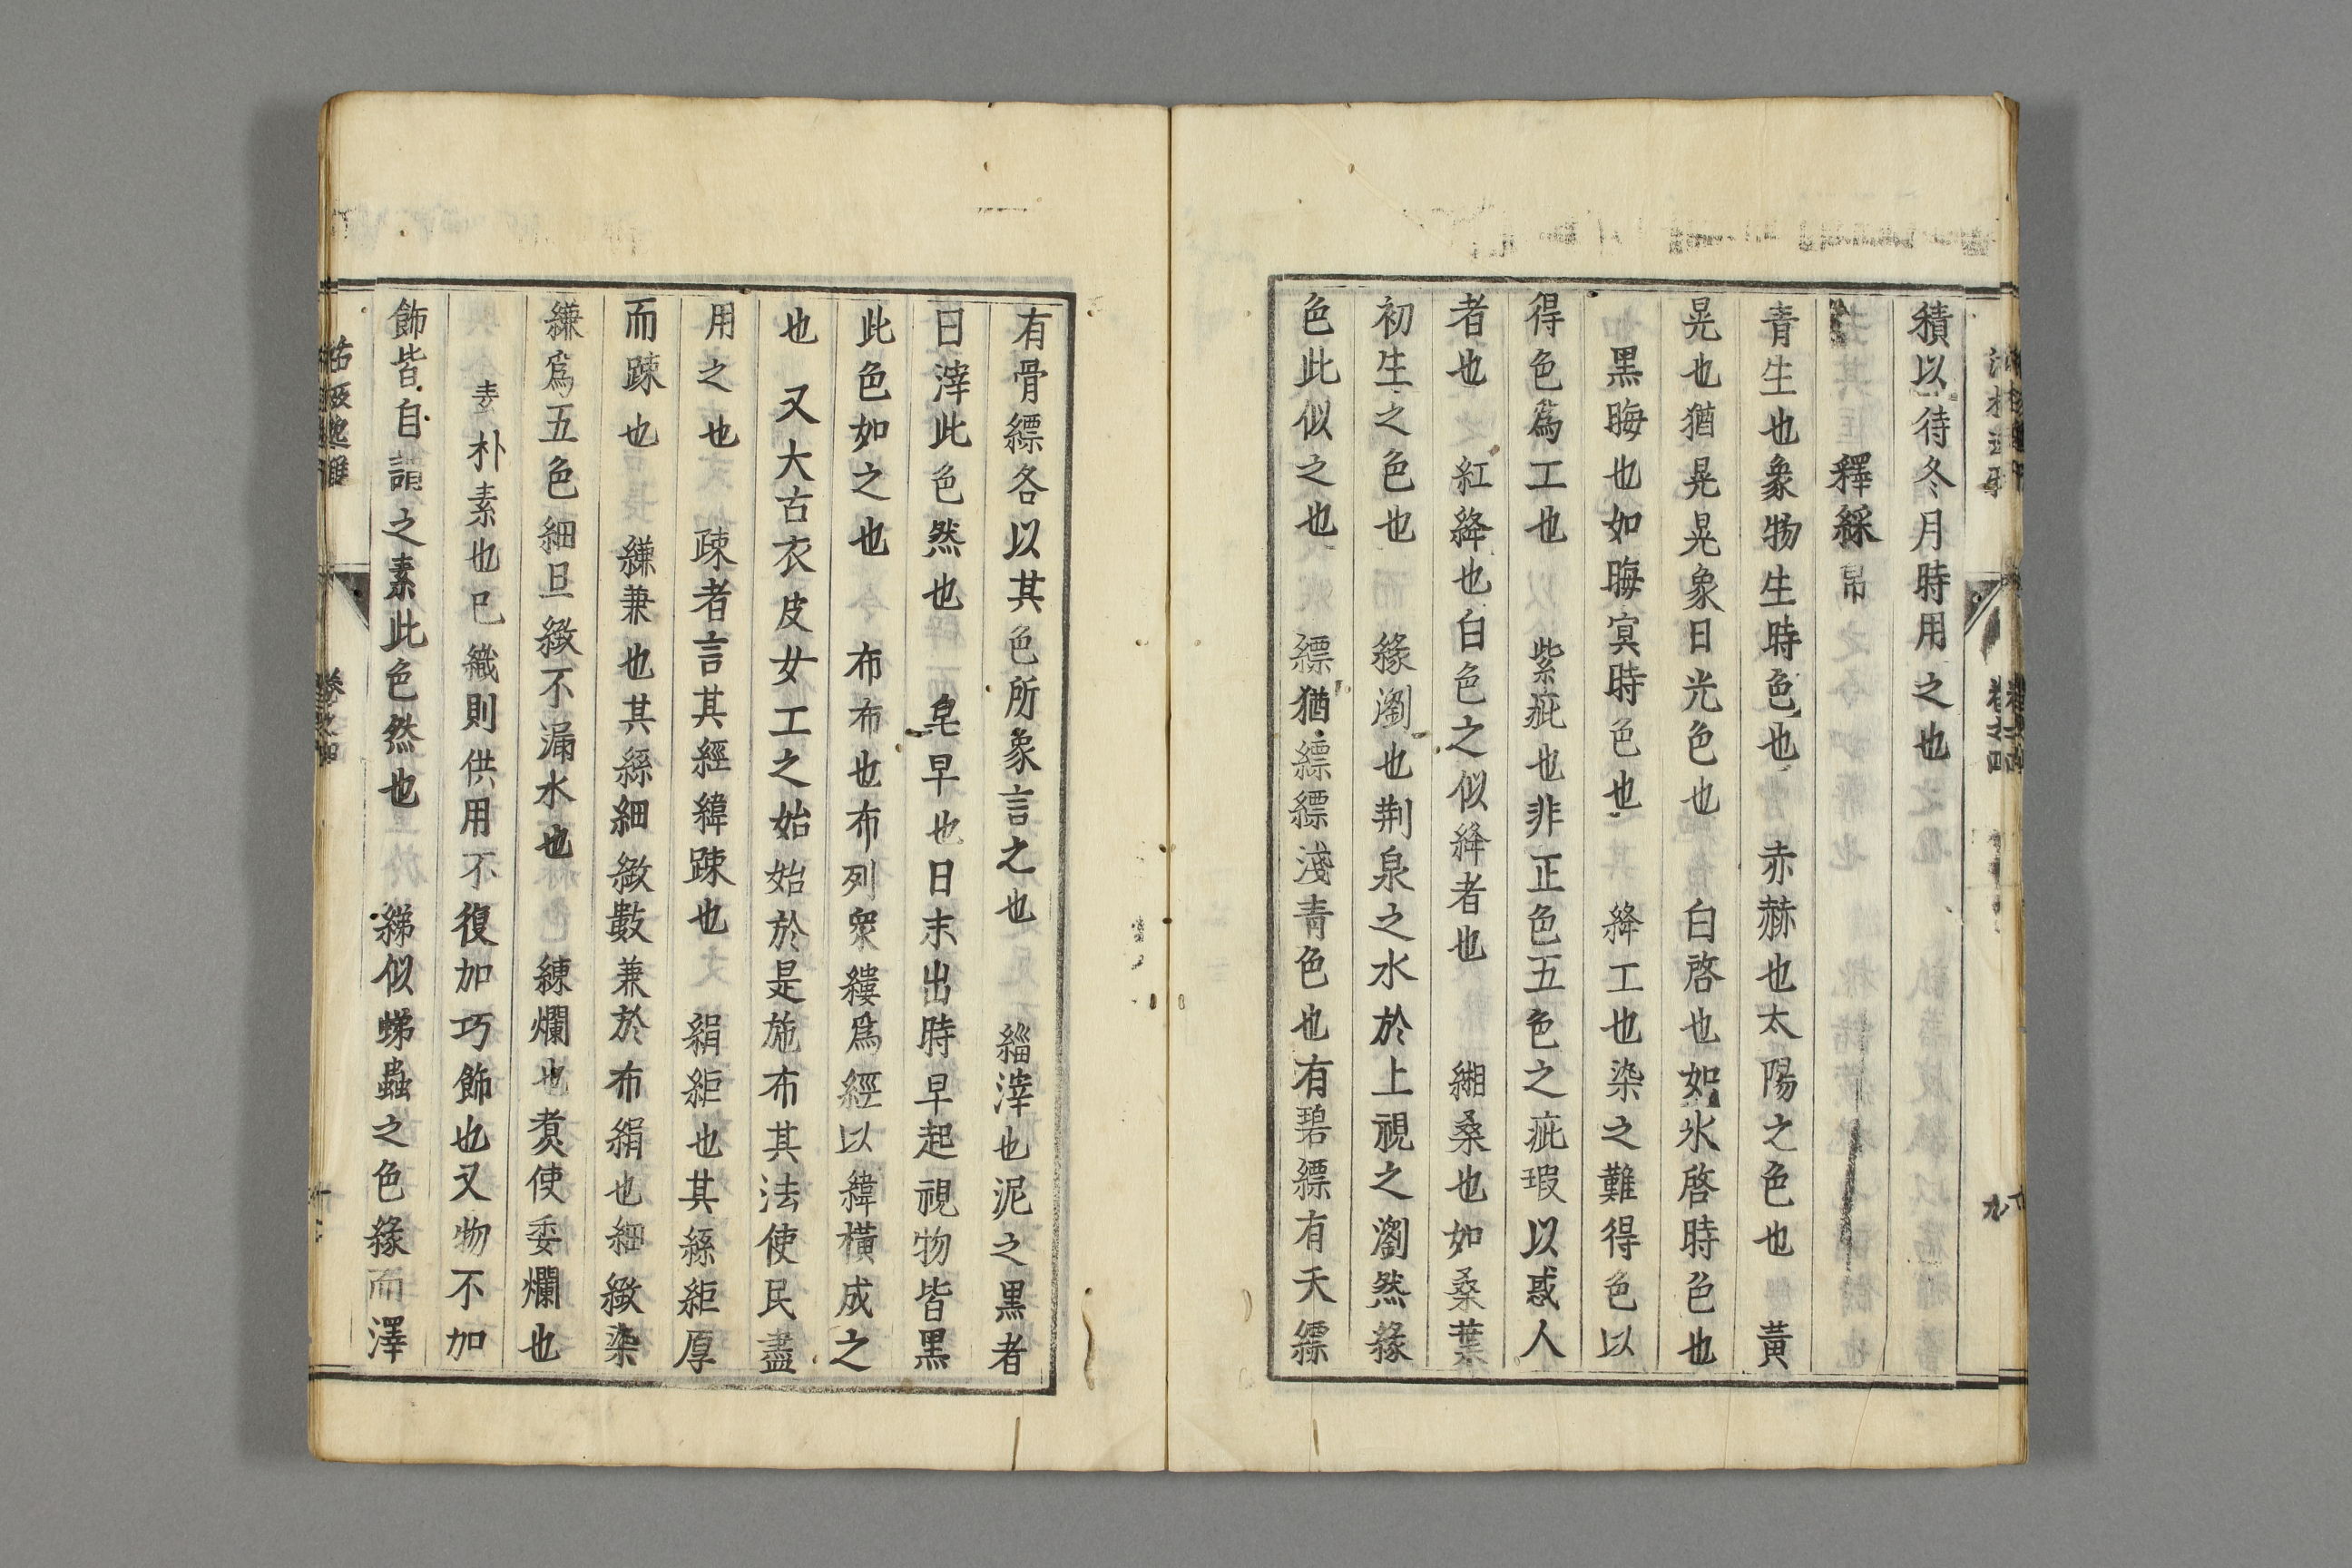 積以待冬月時用之也
釋綵帛
青生也象物生時色也　赤赫也太陽之色也　黃
晃也猶晃晃象日光色也　白啓也如氷啓時色也
黑晦也如晦冥時色也　絳工也染之難得色以
得色爲工也　紫疵也非正色五色之疵瑕以惑人
者也　紅絳也白色之似絳者也　緗桑也如桑葉
初生之色也　綠瀏也荆泉之水於上視之瀏然綠
色此似之也　縹猶縹縹淺青色也有碧縹有天縹
有骨縹各以其色所象言之也　緇滓也泥之黑者
曰滓此色然也　皂早也日末出時早起視物皆黑
此色如之也　布布也布列衆縷爲經以緯橫成之
也　又大古衣皮女工之始始於是施布其法使民盡
用之也　疎者言其經緯踈也　絹䋎也其絲䋎厚
而踈也　縑兼也其絲細緻數兼於布絹也細緻染
縑爲五色細且緻不漏水也　練爛也煑使委爛也
素朴素也巳織則供用不復加巧飾也又物不加
飾皆自謂之素此色然也　綈似蝭蟲之色綠而澤
卷之四
九